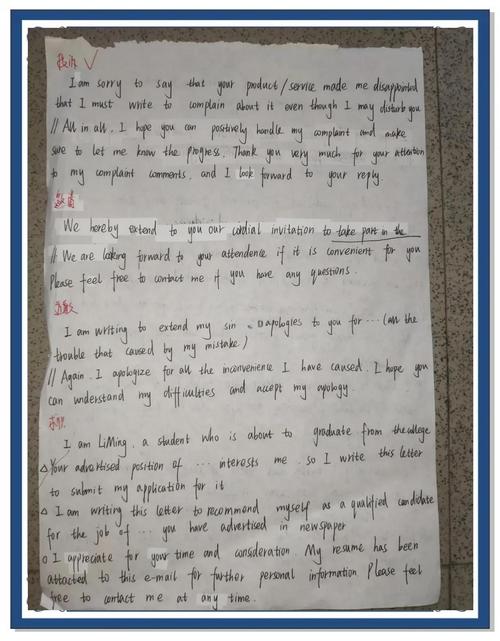 投诉 ✓
I am sorry to say that your product/service made me disappointed
that I must write to complain about it even though I may disturb you
// All in all, I hope you can positively handle my complaint and make
sure to let me know the progress. Thank you very much for your attention
to my complaint comments, and I look forward to your reply
邀请
We hereby extend to you our cordial invitation to take part in the
// We are looking forward to your attendence if it is convenient for you
Please feel free to contact me if you have any questions.
道歉
I am writing to extend my sin apologies to you for ... (all the
trouble that caused by my mistake)
// Again. I apologize for all the inconvenience I have caused. I hope you
can understand my difficulties and accept my apology.
求职
I am LiMing, a student who is about to graduate from the college
△ Your advertised position of ... interests me. so I write this letter
to submit my application for it
△ I am writing this letter to recommend myself as a qualified candidate
for the job of ... you have advertised in newspaper
○ I appreciate for your time and consideration. My resume has been
attacted to this e-mail for further personal information. Please feel
free to contact me at any time.